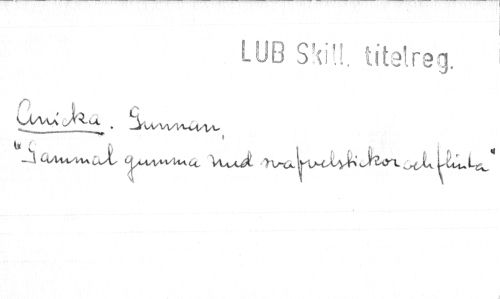 LUB Skill. titelreg.
Anicka. Gunnan,
"Gammal gumma med svafvelstickor och flinta"